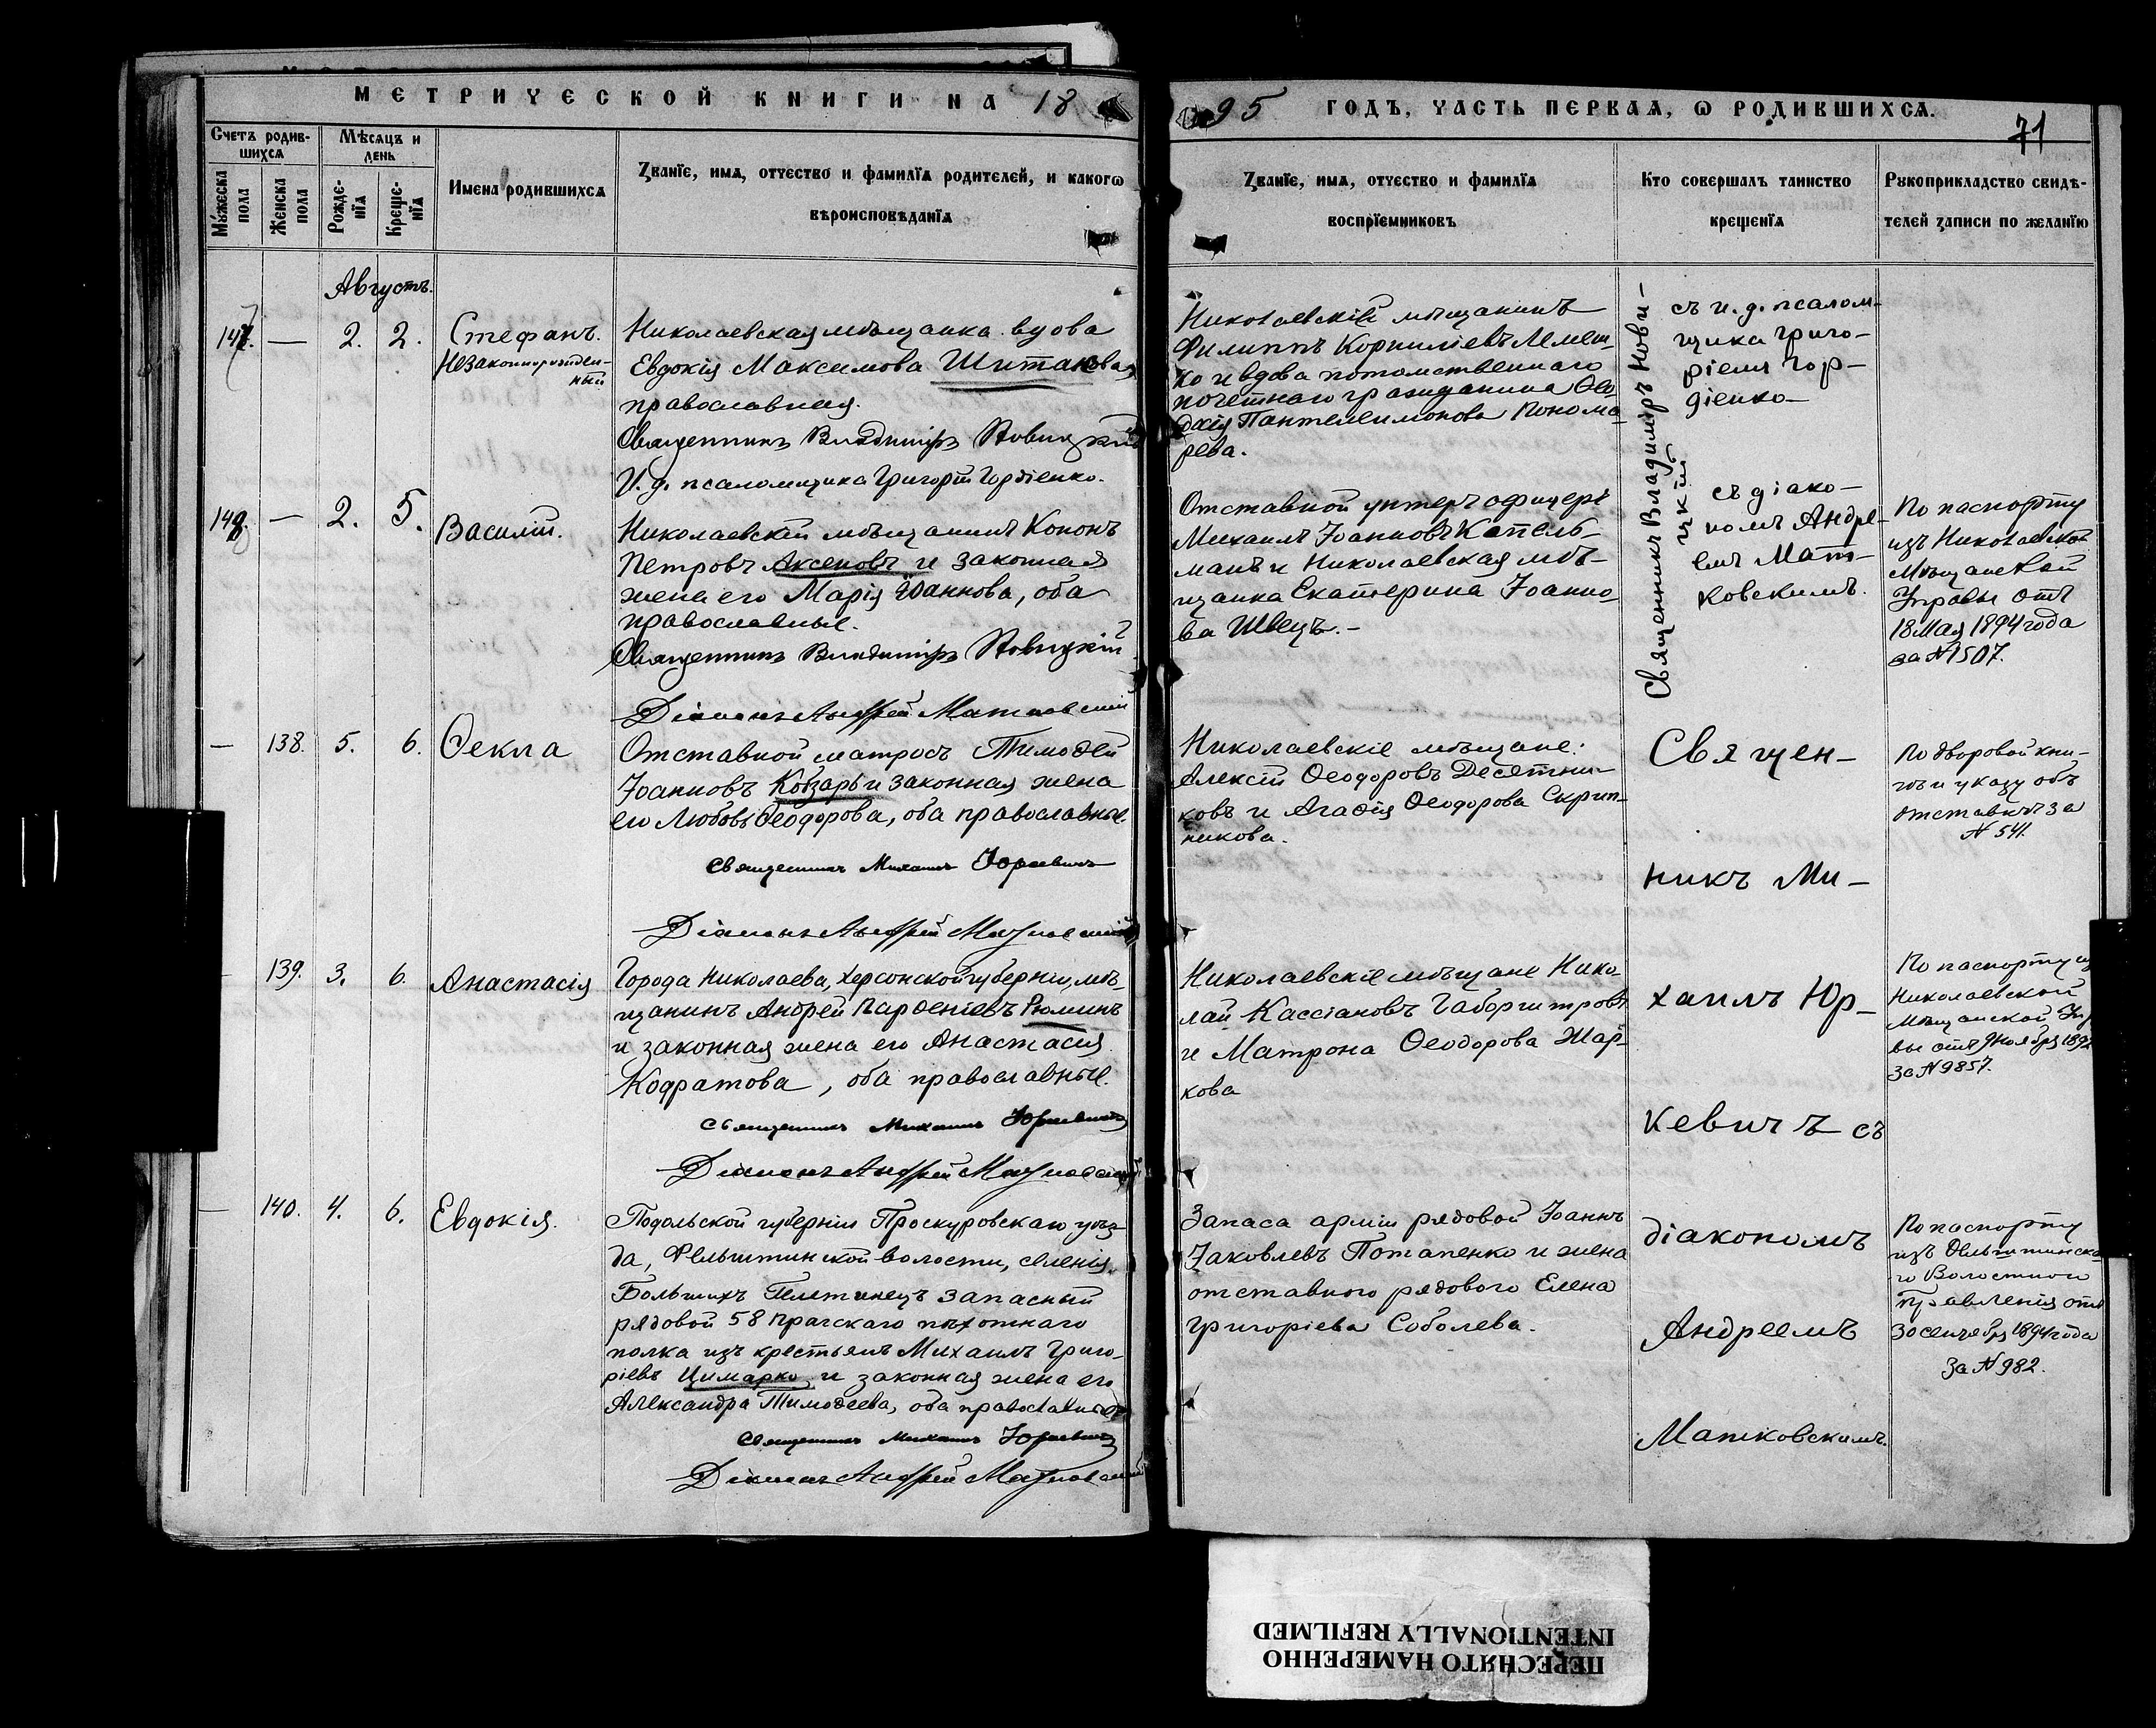 МЕТРИЧЕСКОЙ КНИГИ НА 18
95 ГОДЪ, ЧАСТЬ ПЕРВАЯ, Ѡ РОДИВШИХСЯ.
71
Счетъ родив-
шихся
Мужеска пола
Женска пола
Мѣсяцъ и
день
Рожде-
нїя
Креще-
нїя
Имена родившихся
Званїе, имя, отчество и фамилїя родителей, и какогѡ
вѣроисповѣданїя
Званїе, имя, отчество и фамилїя
воспрїемниковъ
Кто совершалъ таинство
крещенїя
Рукоприкладство свидѣ-
телей записи по желанїю
Августъ.
147. — 2. 2.
Стефанъ.
Незаконнорожден-
ный
Николаевская мѣщанка вдова
Евдокія Максимова Шитакова
православная.
Священникъ Владиміръ Новицкій
И. д. псаломщика Григорій Гордіенко.
Николаевскій мѣщанинъ
Филиппъ Корниліевъ Лемеш-
ко и вдова потомственнаго
почетнаго гражданина Ѳео-
досія Пантелеимонова Понома-
рева.
Священникъ Владиміръ Нови-
цкій
съ и. д. псалом-
щика Григо-
ріемъ Гор-
діенко
148. — 2. 5.
Василій.
Николаевскій мѣщанинъ Кононъ
Петровъ Аксеновъ и законная
жена его Марія Іоаннова, оба
православные.
Священникъ Владиміръ Новицкій
Діаконъ Андрей Матковскій
Отставной унтеръ офицеръ
Михаилъ Іоанновъ Капель-
манъ и Николаевская мѣ-
щанка Екатерина Іоанно-
ва Швецъ.-
съ діако-
номъ Андре-
емъ Мат-
ковскимъ.
По паспорту
изъ Николаевской
Мѣщанской
Управы отъ
18 Мая 1894 года
за №1507.
— 138. 5. 6.
Ѳекла
Отставной матросъ Тимоѳей
Іоанновъ Кобзарь и законная жена
его Любовь Ѳеодорова, оба православные.
Священникъ Михаилъ Юркевичъ
Діаконъ Андрей Матковскій
Николаевскіе мѣщане:
Алексій Ѳеодоровъ Десятни-
ковъ и Агаѳія Ѳеодорова Скрип-
никова.
Священ-
никъ Ми-
хаилъ Юр-
кевичъ съ
діакономъ
Андреемъ
Матковскимъ.
По дворовой кни-
гѣ и указу объ
отставкѣ за
№ 541.
— 139. 3. 6.
Анастасія
Города Николаева, Херсонской губерніи, мѣ-
щанинъ Андрей Парѳеніевъ Рюминъ
и законная жена его Анастасія
Кодратова, оба православные.
Священникъ Михаилъ Юркевичъ
Діаконъ Андрей Матковскій
Николаевскіе мѣщане Нико-
лай Кассіановъ
и Матрона Ѳеодорова Жар-
кова
По паспорту из
Николаевской
Мѣщанской Упр
вы отъ 9 Ноября 189
За №9857.
— 140. 4. 6.
Евдокія.
Подольской губерніи Проскуровскаго уѣз-
да, Фельштинской волости, селенія
Большихъ запасный
рядовой 58 Прагскаго пѣхотнаго
полка изъ крестьянъ Михаилъ Григо-
ріевъ Цимарко и законная жена его
Александра Тимоѳеева, оба православные
Священникъ Михаилъ Юркевичъ
Діаконъ Андрей Матковскій
Запаса арміи рядовой Іоаннъ
Іаковлевъ Потапенко и жена
отставного рядового Елена
Григоріева Соболева.
По паспорту
изъ Фельштинска-
го Волостного
Правленія отъ
30 сентября 1894 года
За №982.
ПЕРЕСНЯТО НАМЕРЕННО
INTENTIONALLY REFILMED